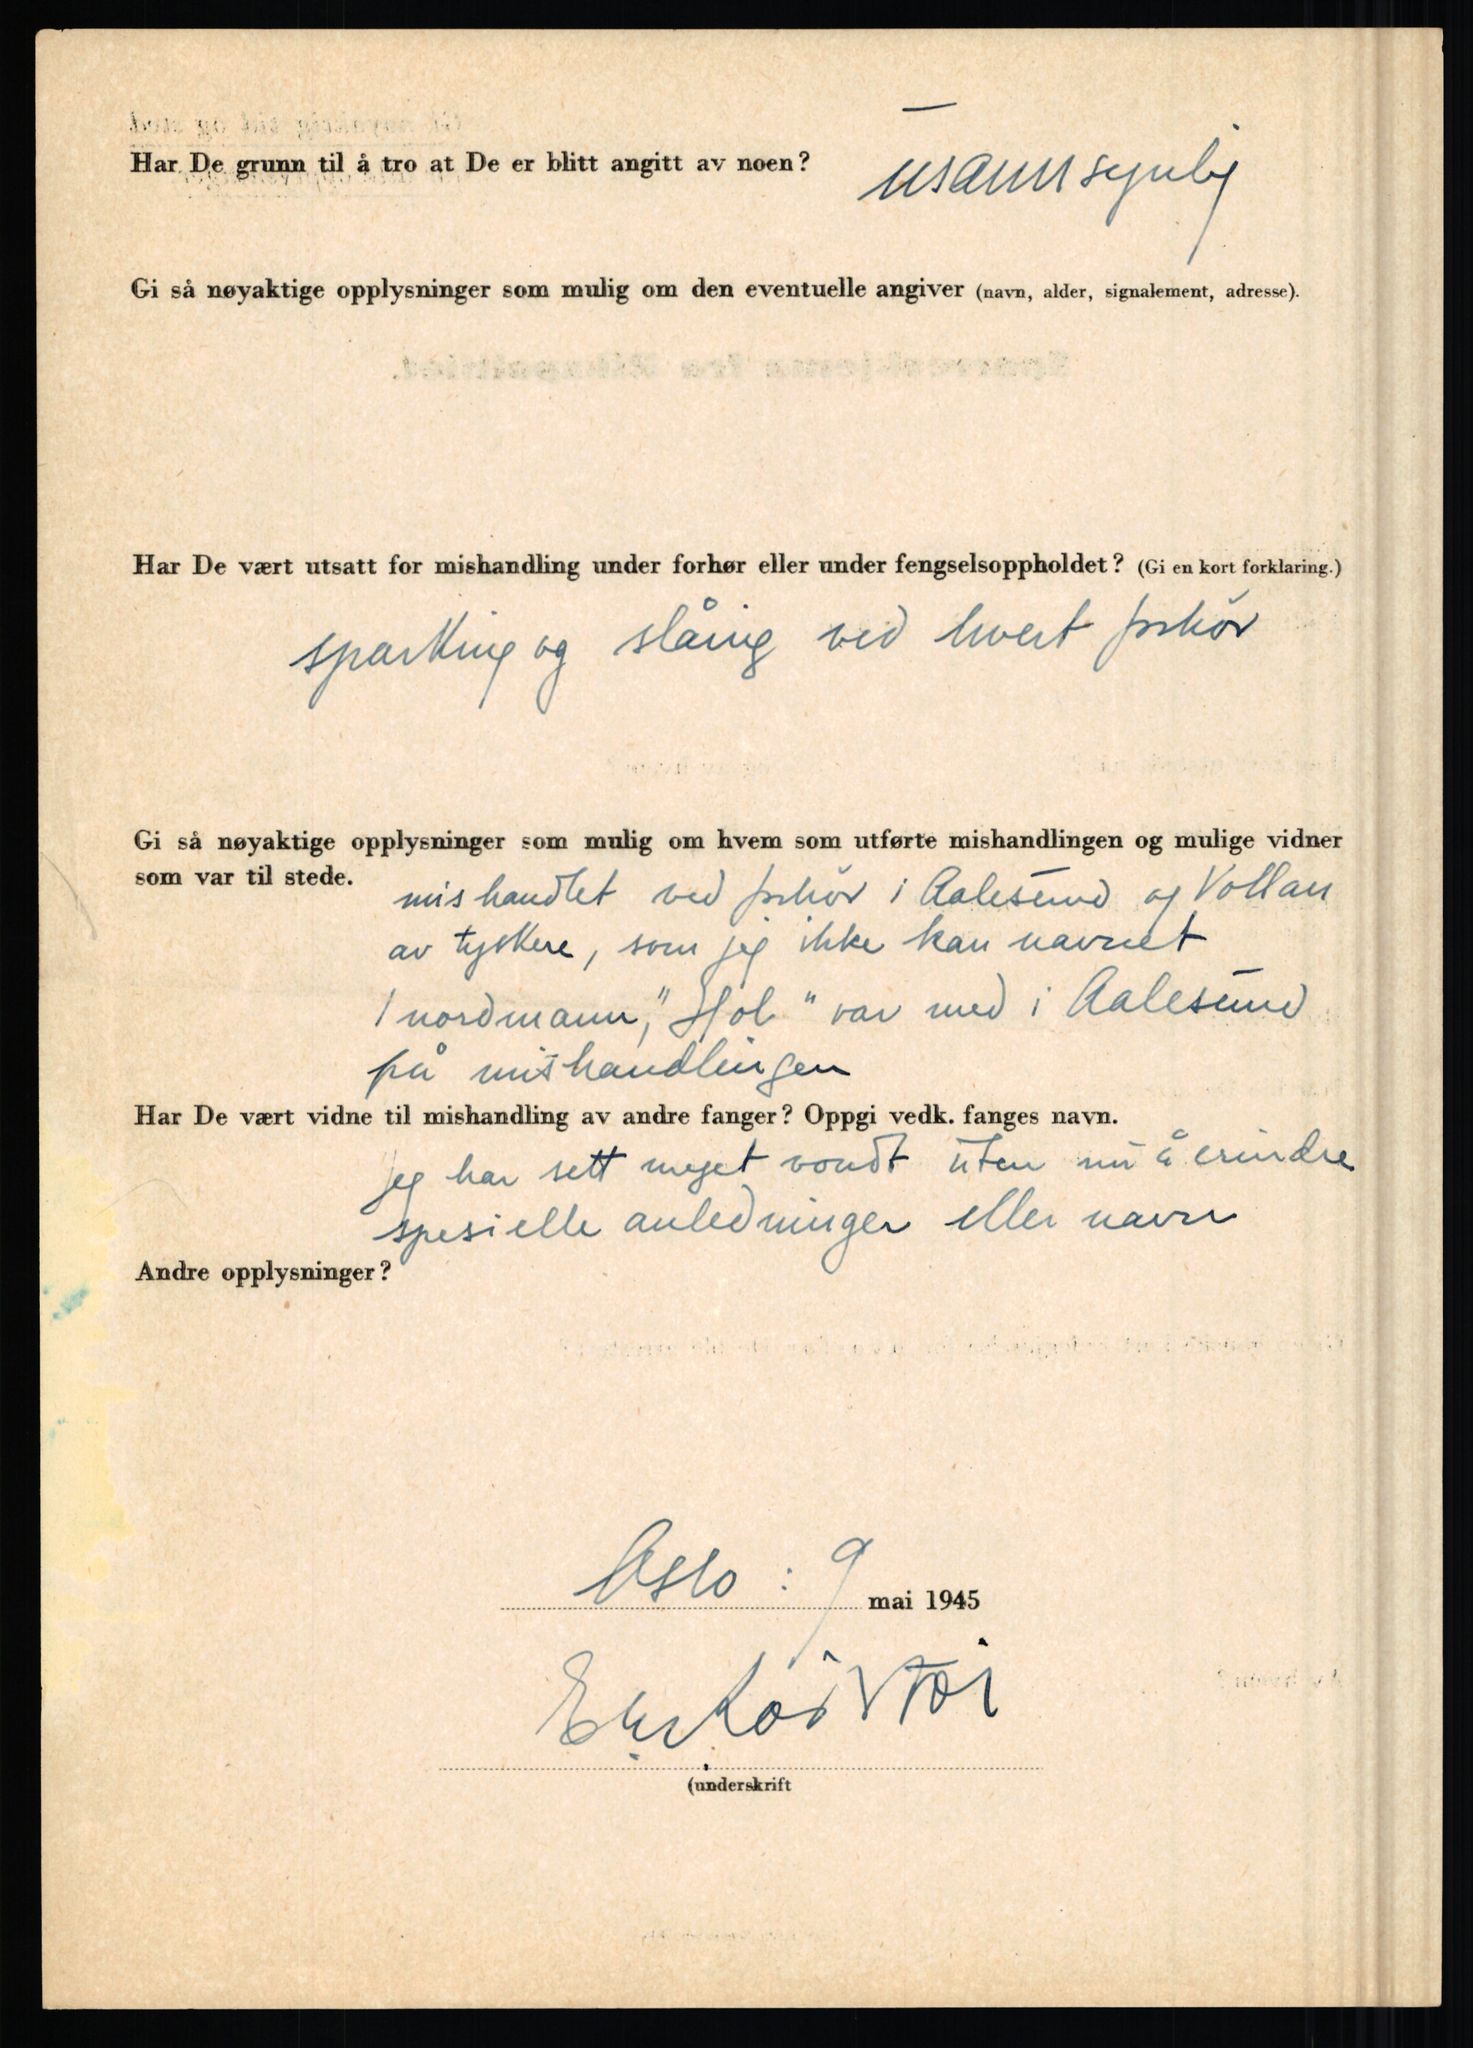 Har De grunn til å tro at De er blitt angitt av noen?
usannsynlig
Gi så nøyaktige opplysninger som mulig om den eventuelle angiver (navn, alder, signalement, adresse).
Har De vært utsatt for mishandling under forhør eller under fengselsoppholdet? (Gi en kort forklaring.)
sparking og slåing ved hvert forhør
Gi så nøyaktige opplysninger som mulig om hvem som utførte mishandlingen og mulige vidner
som var til stede.
mishandlet ved forhør i Aalesund og Vollan
av tyskere, som jeg ikke kan navnet
1 nordmann, "Hol" var med i Aalesund
på mishandlingen
Har De vært vidne til mishandling av andre fanger? Oppgi vedk. fanges navn.
jeg har sett meget vondt uten nu å erindre
spesielle anledninger eller navn
Andre opplysninger?
Oslo : 9 mai 1945
(underskrift